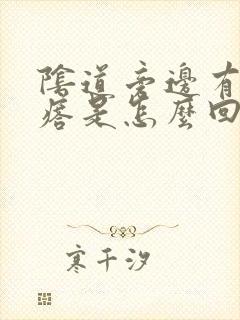 陰道旁邊有
痞是怎麼回
寒千汐